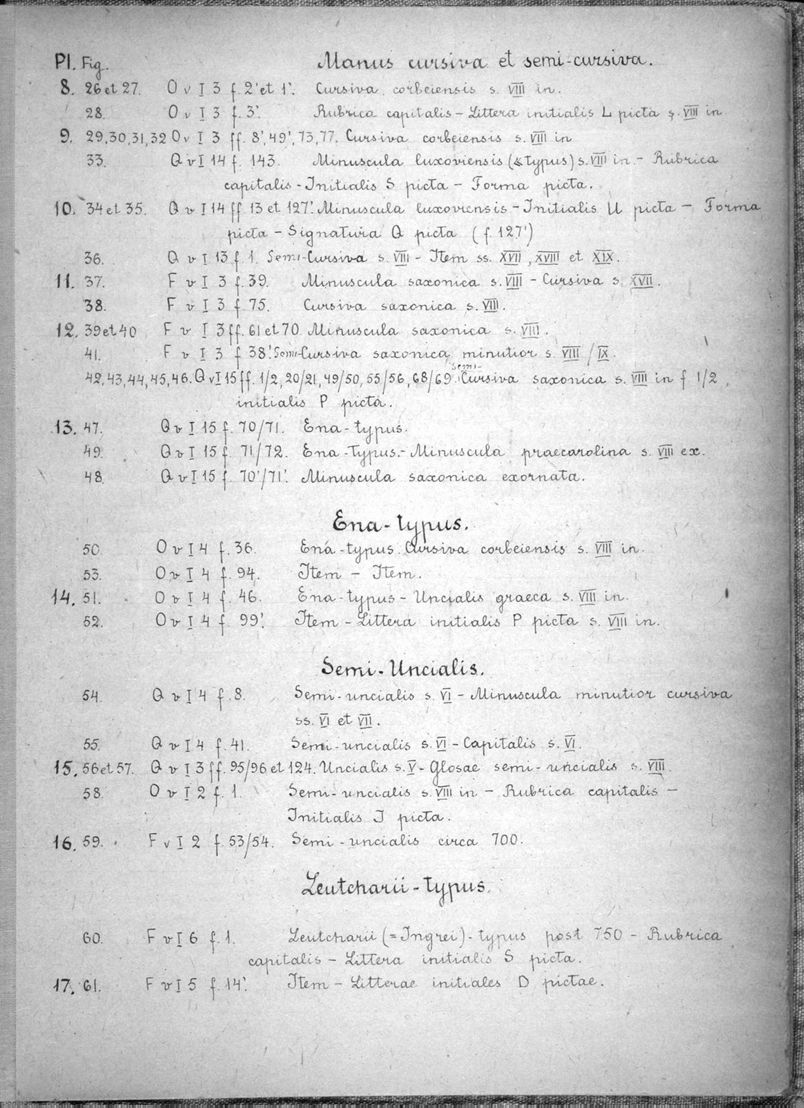 Pl. Fig. Manus cursiva et semi-cursiva.
8. 26 et 27. O v I 3 f. 2' et 1'. Cursiva corbeiensis s. VIII in.
28. O v I 3 f. 3'. Rubrica capitalis - Littera initialis L picta s. VIII in
9. 29, 30, 31, 32 O v I 3 ff. 8', 49', 73, 77. Cursiva corbeiensis s. VIII in
33. Q v I 14 f. 143. Minuscula luxoviensis ( typus) s. VIII in - Rubrica
capitalis - Initialis S picta - Forma picta.
10. 34 et 35. Q v I 14 ff 13 et 127'. Minuscula luxoviensis - Initialis U picta - Forma
picta - Signatura Q picta (f. 127')
36. Q v I 13 f. 1. Semi-Cursiva s. VIII - Item ss. XVII, XVIII et XIX.
11. 37. F v I 3 f. 39. Minuscula saxonica s. VIII - Cursiva s. XVII.
38. F v I 3 f. 75. Cursiva saxonica s. VIII.
12. 39 et 40 F v I 3 ff. 61 et 70. Minuscula saxonica s. VIII.
41. F v I 3 f 38'. Semi-Cursiva saxonica minutior s. VIII / IX.
42, 43, 44, 45, 46. Q v I 15 ff. 1/2, 20/21, 49/50, 55/56, 68/69. Semi-Cursiva saxonica s. VIII in f 1/2,
initialis P picta.
13. 47. Q v I 15 f. 70/71. Ena-typus.
49. Q v I 15 f. 71/72. Ena-Typus. - Minuscula praecarolina s. VIII ex.
48. Q v I 15 f. 70'/71'. Minuscula saxonica exornata.
Ena-typus.
50. O v I 4 f. 36. Ena-typus. Cursiva corbeiensis s. VIII in.
53. O v I 4 f. 94. Item - Item.
14. 51. O v I 4 f. 46. Ena-typus - Uncialis graeca s. VIII in.
52. O v I 4 f. 99'. Item - Littera initialis P picta s. VIII in.
Semi-Uncialis.
54. Q v I 4 f. 8. Semi-uncialis s. VI - Minuscula minutior cursiva
ss. VI et VII.
55. Q v I 4 f. 41. Semi-uncialis s. VI - Capitalis s. VI.
15. 56 et 57. Q v I 3 ff. 95/96 et 124. Uncialis s. V - Glosae semi-uncialis s. VIII
58. O v I 2 f. 1. Semi-uncialis s. VIII in - Rubrica capitalis -
Initialis I picta.
16. 59. F v I 2 f. 53/54. Semi-uncialis circa 700.
Leutcharii-typus.
60. F v I 6 f. 1. Leutcharii (= Ingrei)-typus post 750 - Rubrica
capitalis - Littera initialis S picta.
17. 61. F v I 5 f. 14'. Item - Litterae initiales D pictae.